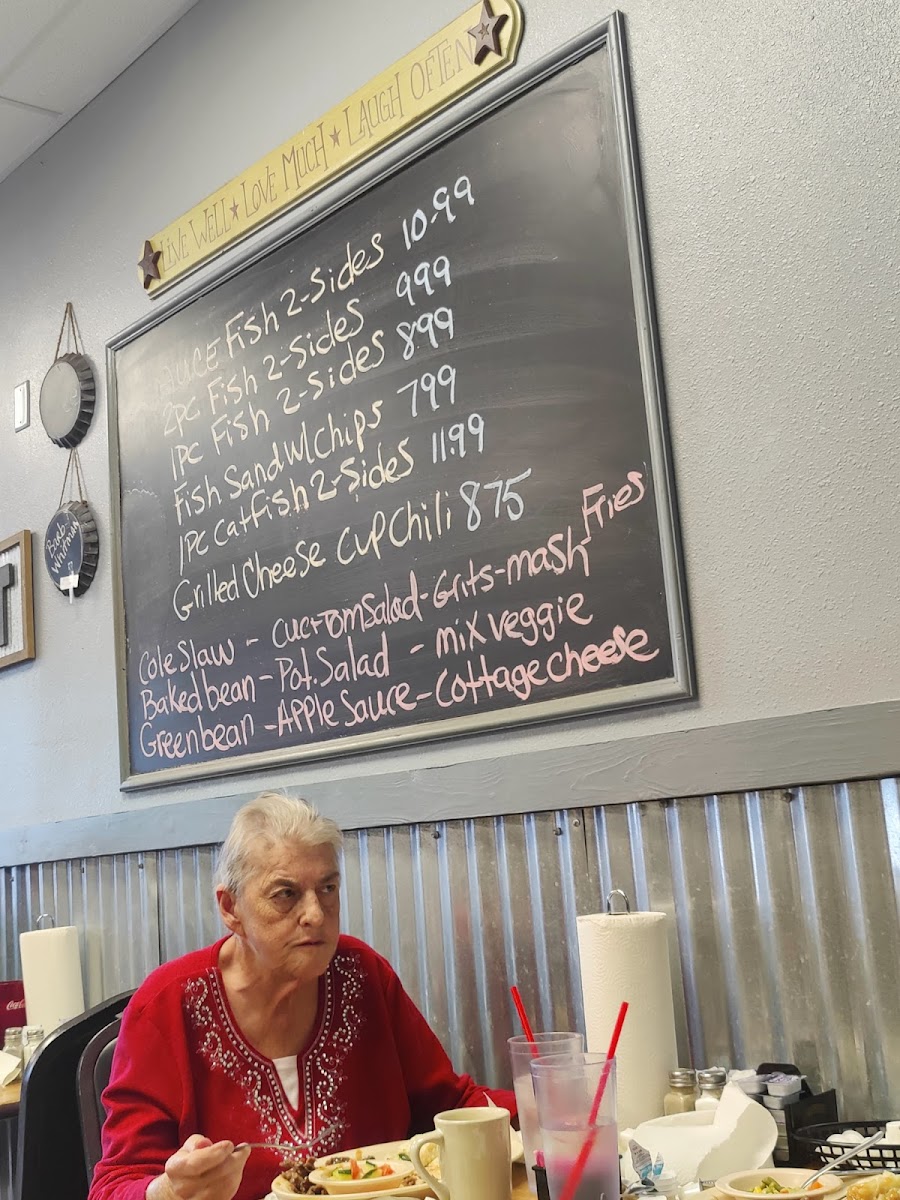 LIVE WELL ★ LOVE MUCH ★ LAUGH OFTEN
Fish 2-Sides 10.99
2pc Fish 2-Sides 999
1pc Fish 2-Sides 899
Fish Sand W/ Chips 799
1pc Catfish 2-Sides 11.99
Grilled Cheese Cup Chili 875
Cole Slaw - Cuc-Tom Salad - Grits - mash Fries
Baked bean - Pot. Salad - mix veggie
Green bean - Apple Sauce - Cottage Cheese
Whitman
Coca-Cola